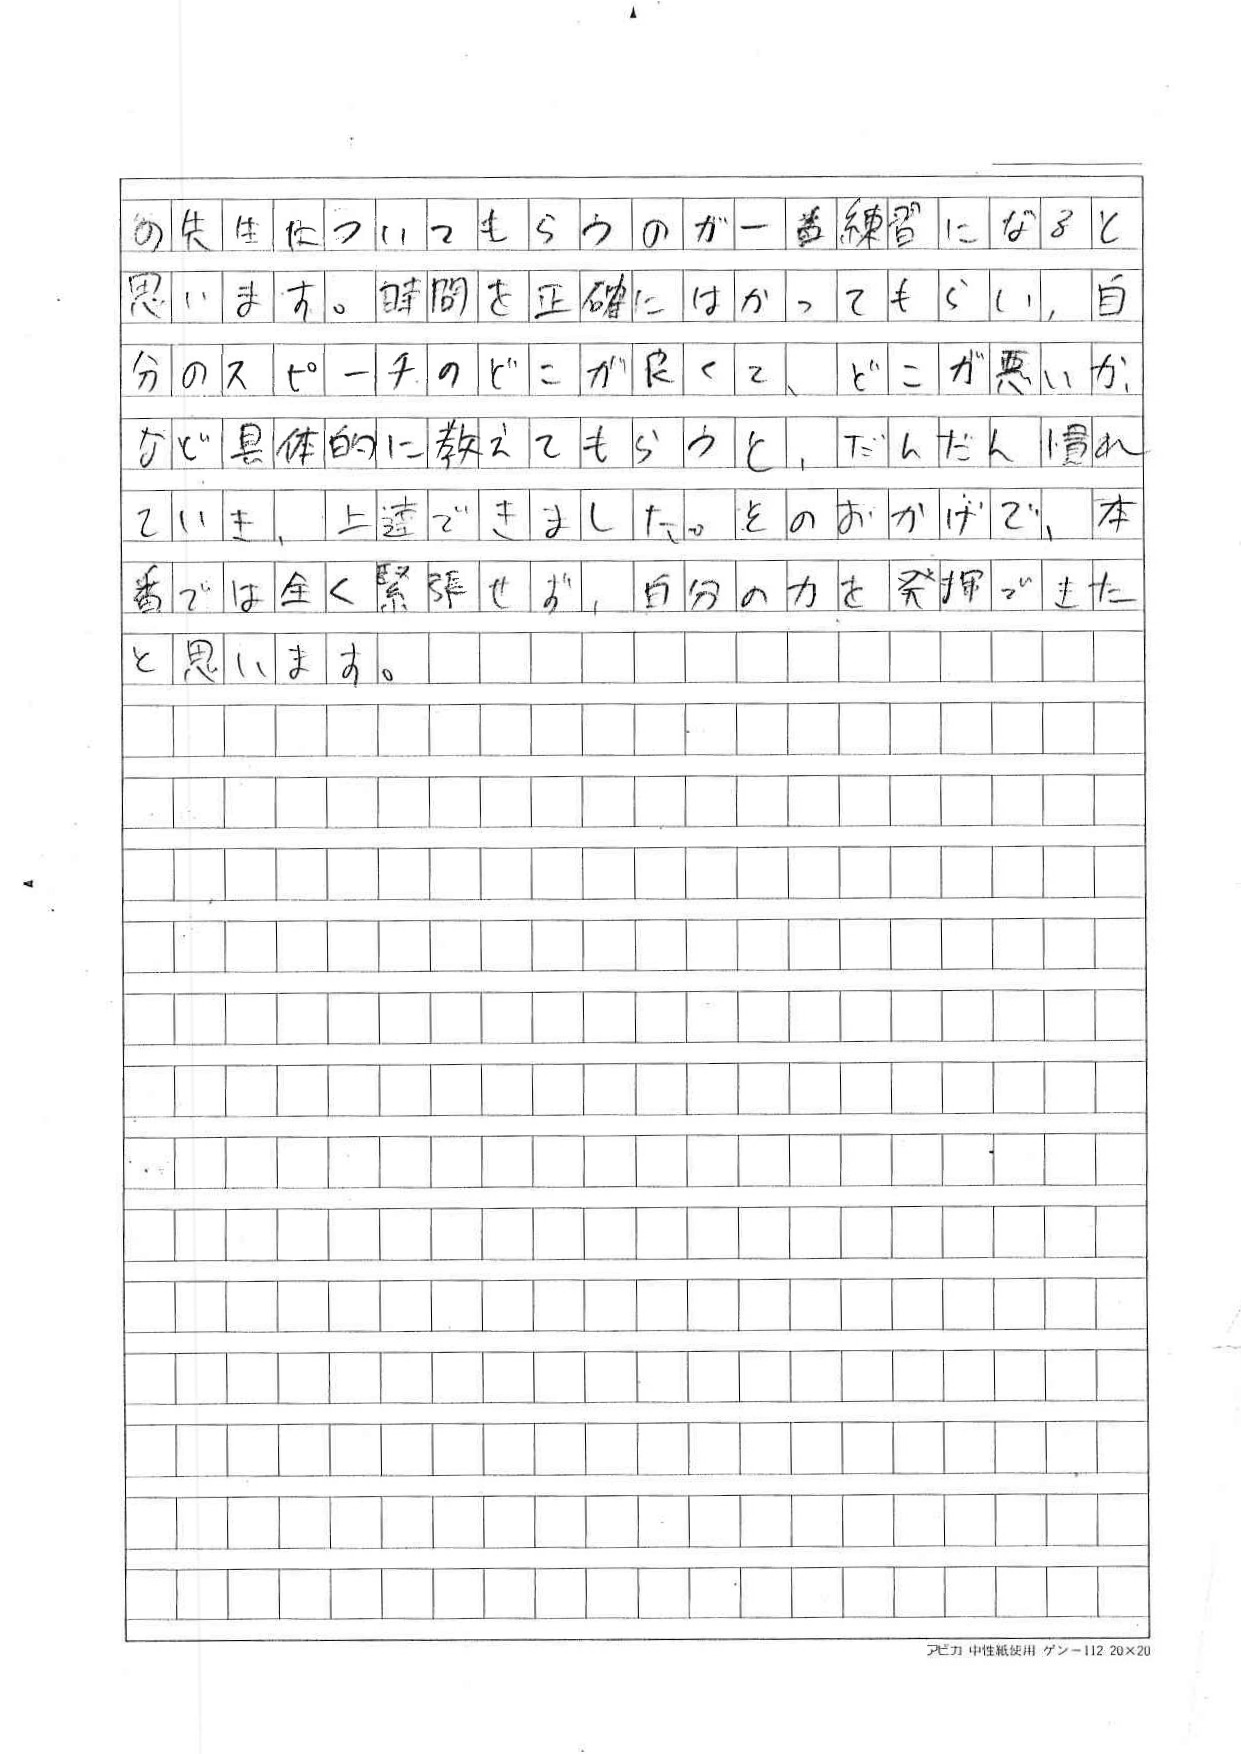 の先生についてもらうのが一番練習になると
思います。時間を正確にはかってもらい、自
分のスピーチのどこが良くて、どこが悪いか、
など具体的に教えてもらうと、だんだん慣れ
ていき、上達できました。そのおかげで、本
番では全く緊張せず、自分の力を発揮できた
と思います。
アピカ 中性紙使用 ゲンー112 20×20